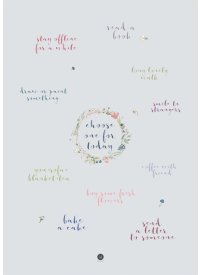 read a
book
stay offline
for a while
long lovely
walk
draw or paint
something
smile to
strangers
choose
one for
today
coffee with
friend
blanket
buy some fresh
flowers
bake
a cake
send
a letter
to someone